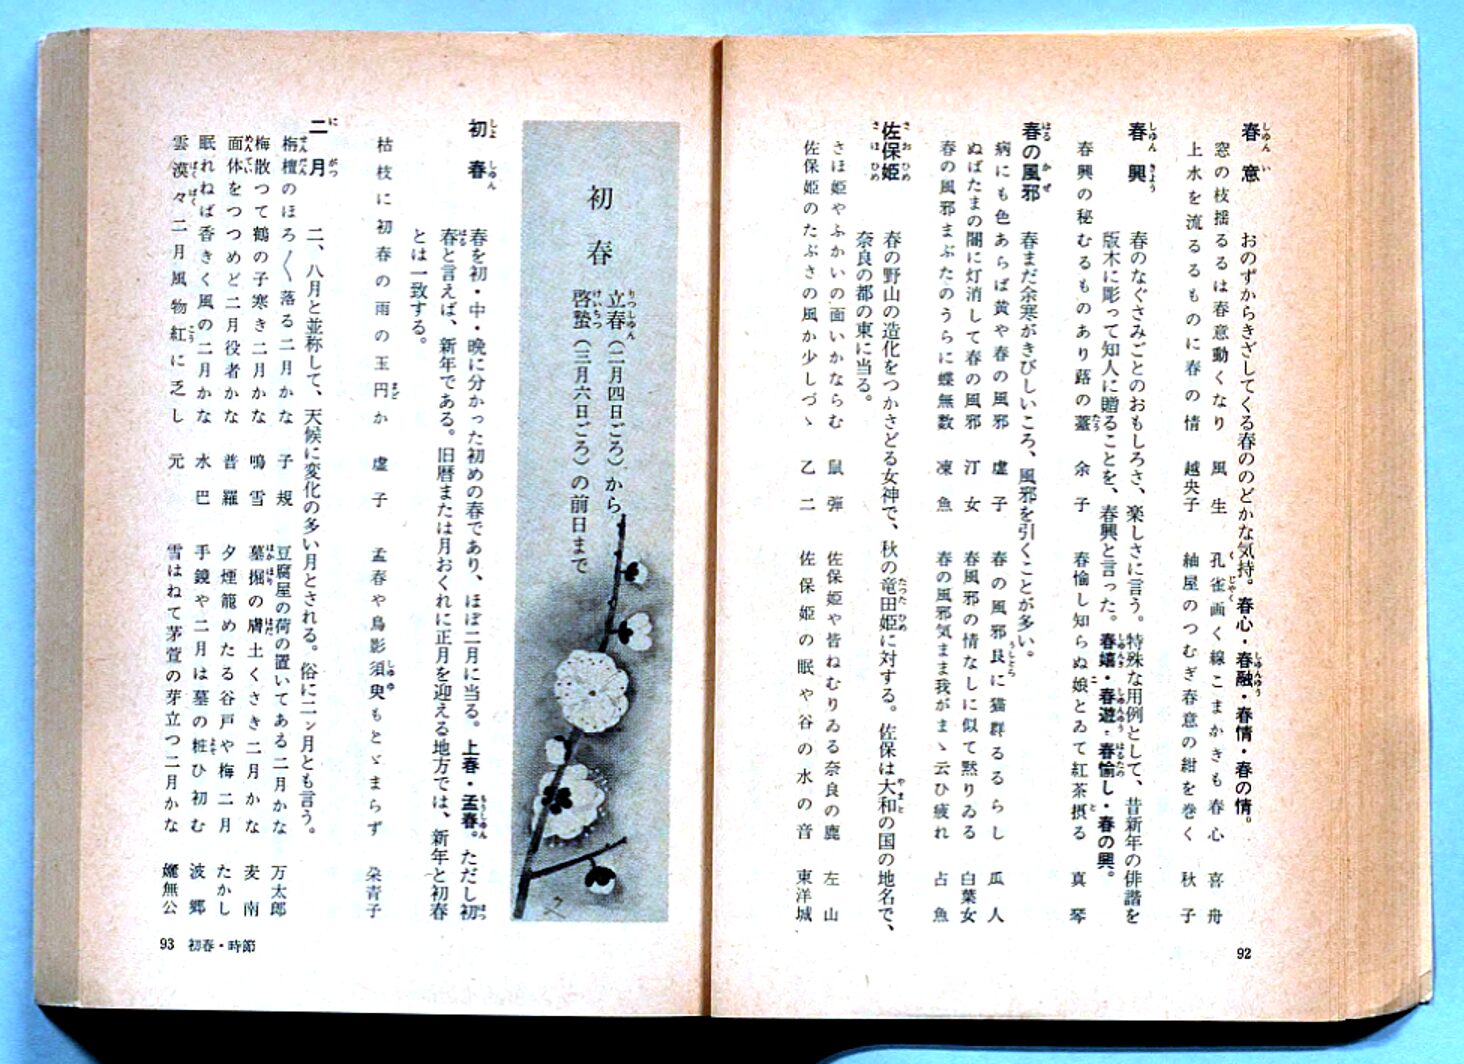 春意
おのずからきざしてくる春ののどかな気持。春心・春融・春情・春の情。
窓の枝揺るるは春意動くなり 風生
孔雀画く線こまかきも春心 喜舟
上水を流るるものに春の情 越央子
紬屋のつむぎ春意の紺を巻く 秋子
春興
春のなぐさみごとのおもしろさ、楽しさに言う。特殊な用例として、昔新年の俳諧を
版木に彫って知人に贈ることを、春興と言った。春嬉・春遊・春愉し・春の興。
春興の秘むるものあり蕗の薹 余子
春愉し知らぬ娘とゐて紅茶摂る 真琴
春の風邪
春まだ余寒がきびしいころ、風邪を引くことが多い。
病にも色あらば黄や春の風邪 虚子
春の風邪艮に猫群るるらし 瓜人
ぬばたまの闇に灯消して春の風邪 汀女
春風邪の情なしに似て黙りゐる 白葉女
春の風邪まぶたのうらに蝶無数 凍魚
春の風邪気まま我がまゝ云ひ疲れ 占魚
佐保姫
春の野山の造化をつかさどる女神で、秋の竜田姫に対する。佐保は大和の国の地名で、
奈良の都の東に当る。
さほ姫やふかいの面いかならむ 鼠弾
佐保姫や皆ねむりゐる奈良の鹿 左山
佐保姫のたぶさの風か少しづゝ 乙二
佐保姫の眠や谷の水の音 東洋城
92
初春
立春(二月四日ごろ)から
啓蟄(三月六日ごろ)の前日まで
初春
春を初・中・晩に分かった初めの春であり、ほぼ二月に当る。上春・孟春。ただし初
春と言えば、新年である。旧暦または月おくれに正月を迎える地方では、新年と初春
とは一致する。
枯枝に初春の雨の玉円か 虚子
孟春や鳥影須臾もとゞまらず 朶青子
二月
二、八月と並称して、天候に変化の多い月とされる。俗に二ッ月とも言う。
栴檀のほろ〳〵落る二月かな 子規
豆腐屋の荷の置いてある二月かな 万太郎
梅散つて鶴の子寒き二月かな 鳴雪
墓掘の膚土くさき二月かな 麦南
面体をつつめど二月役者かな 普羅
夕煙籠めたる谷戸や梅二月 たかし
眠れねば香きく風の二月かな 水巴
手鏡や二月は墓の粧ひ初む 波郷
雲漠々二月風物紅に乏し 元
雪はねて茅萱の芽立つ二月かな 無公
93 初春・時節